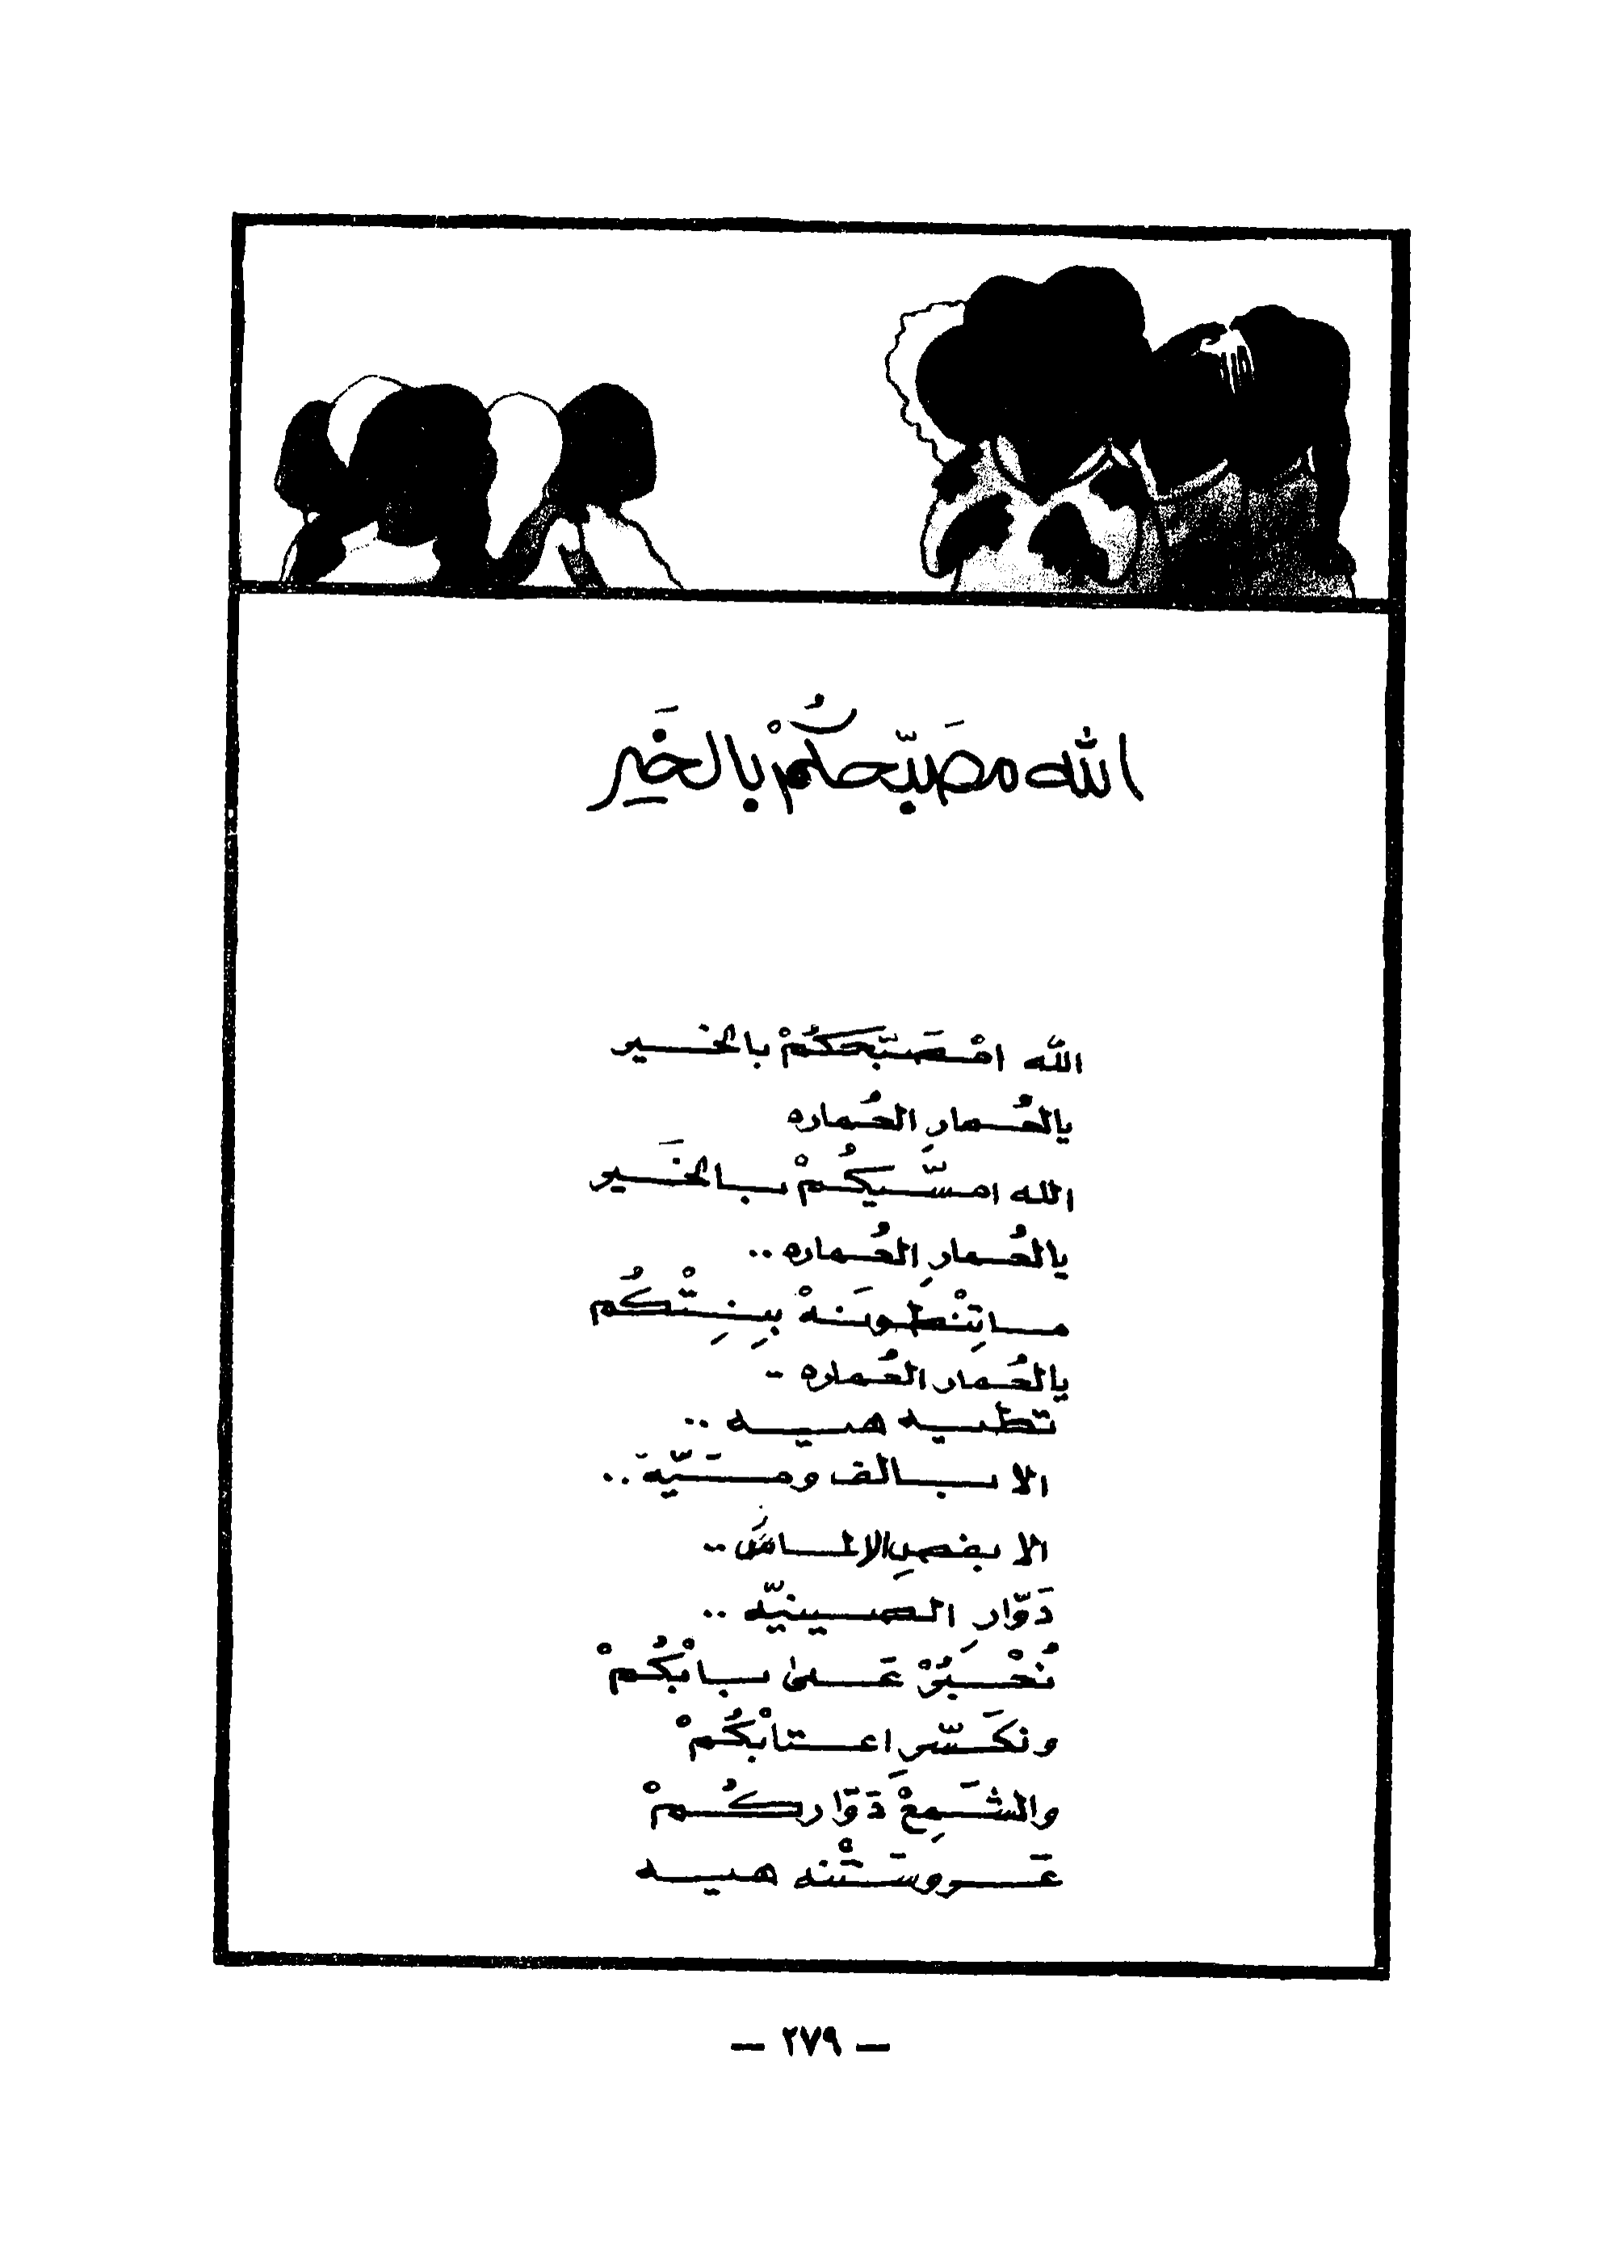 الله مصَبّحكُمْ بالخَير
الله امْصَبّحَكُمْ بالخــير
يالعُمارِ العُماره
الله امسّيكُمْ بالخَير
يالعُمارِ العُماره ..
ماتِنْطونَهْ بِنِتْكُم
يالعُمار العُماره ..
تطيه هيه ..
الا بالف وميَّة ..
الا بفصِ الالماسْ ..
دَوّارِ الصينيّه ..
نُحْبُرْ عَلىٰ بابْكُمْ
ونكَسّرِ اعتابْكُمْ
والشَمِعْ دَوّاركُمْ
عَروسَتْنه هيه
— ٢٧٩ —